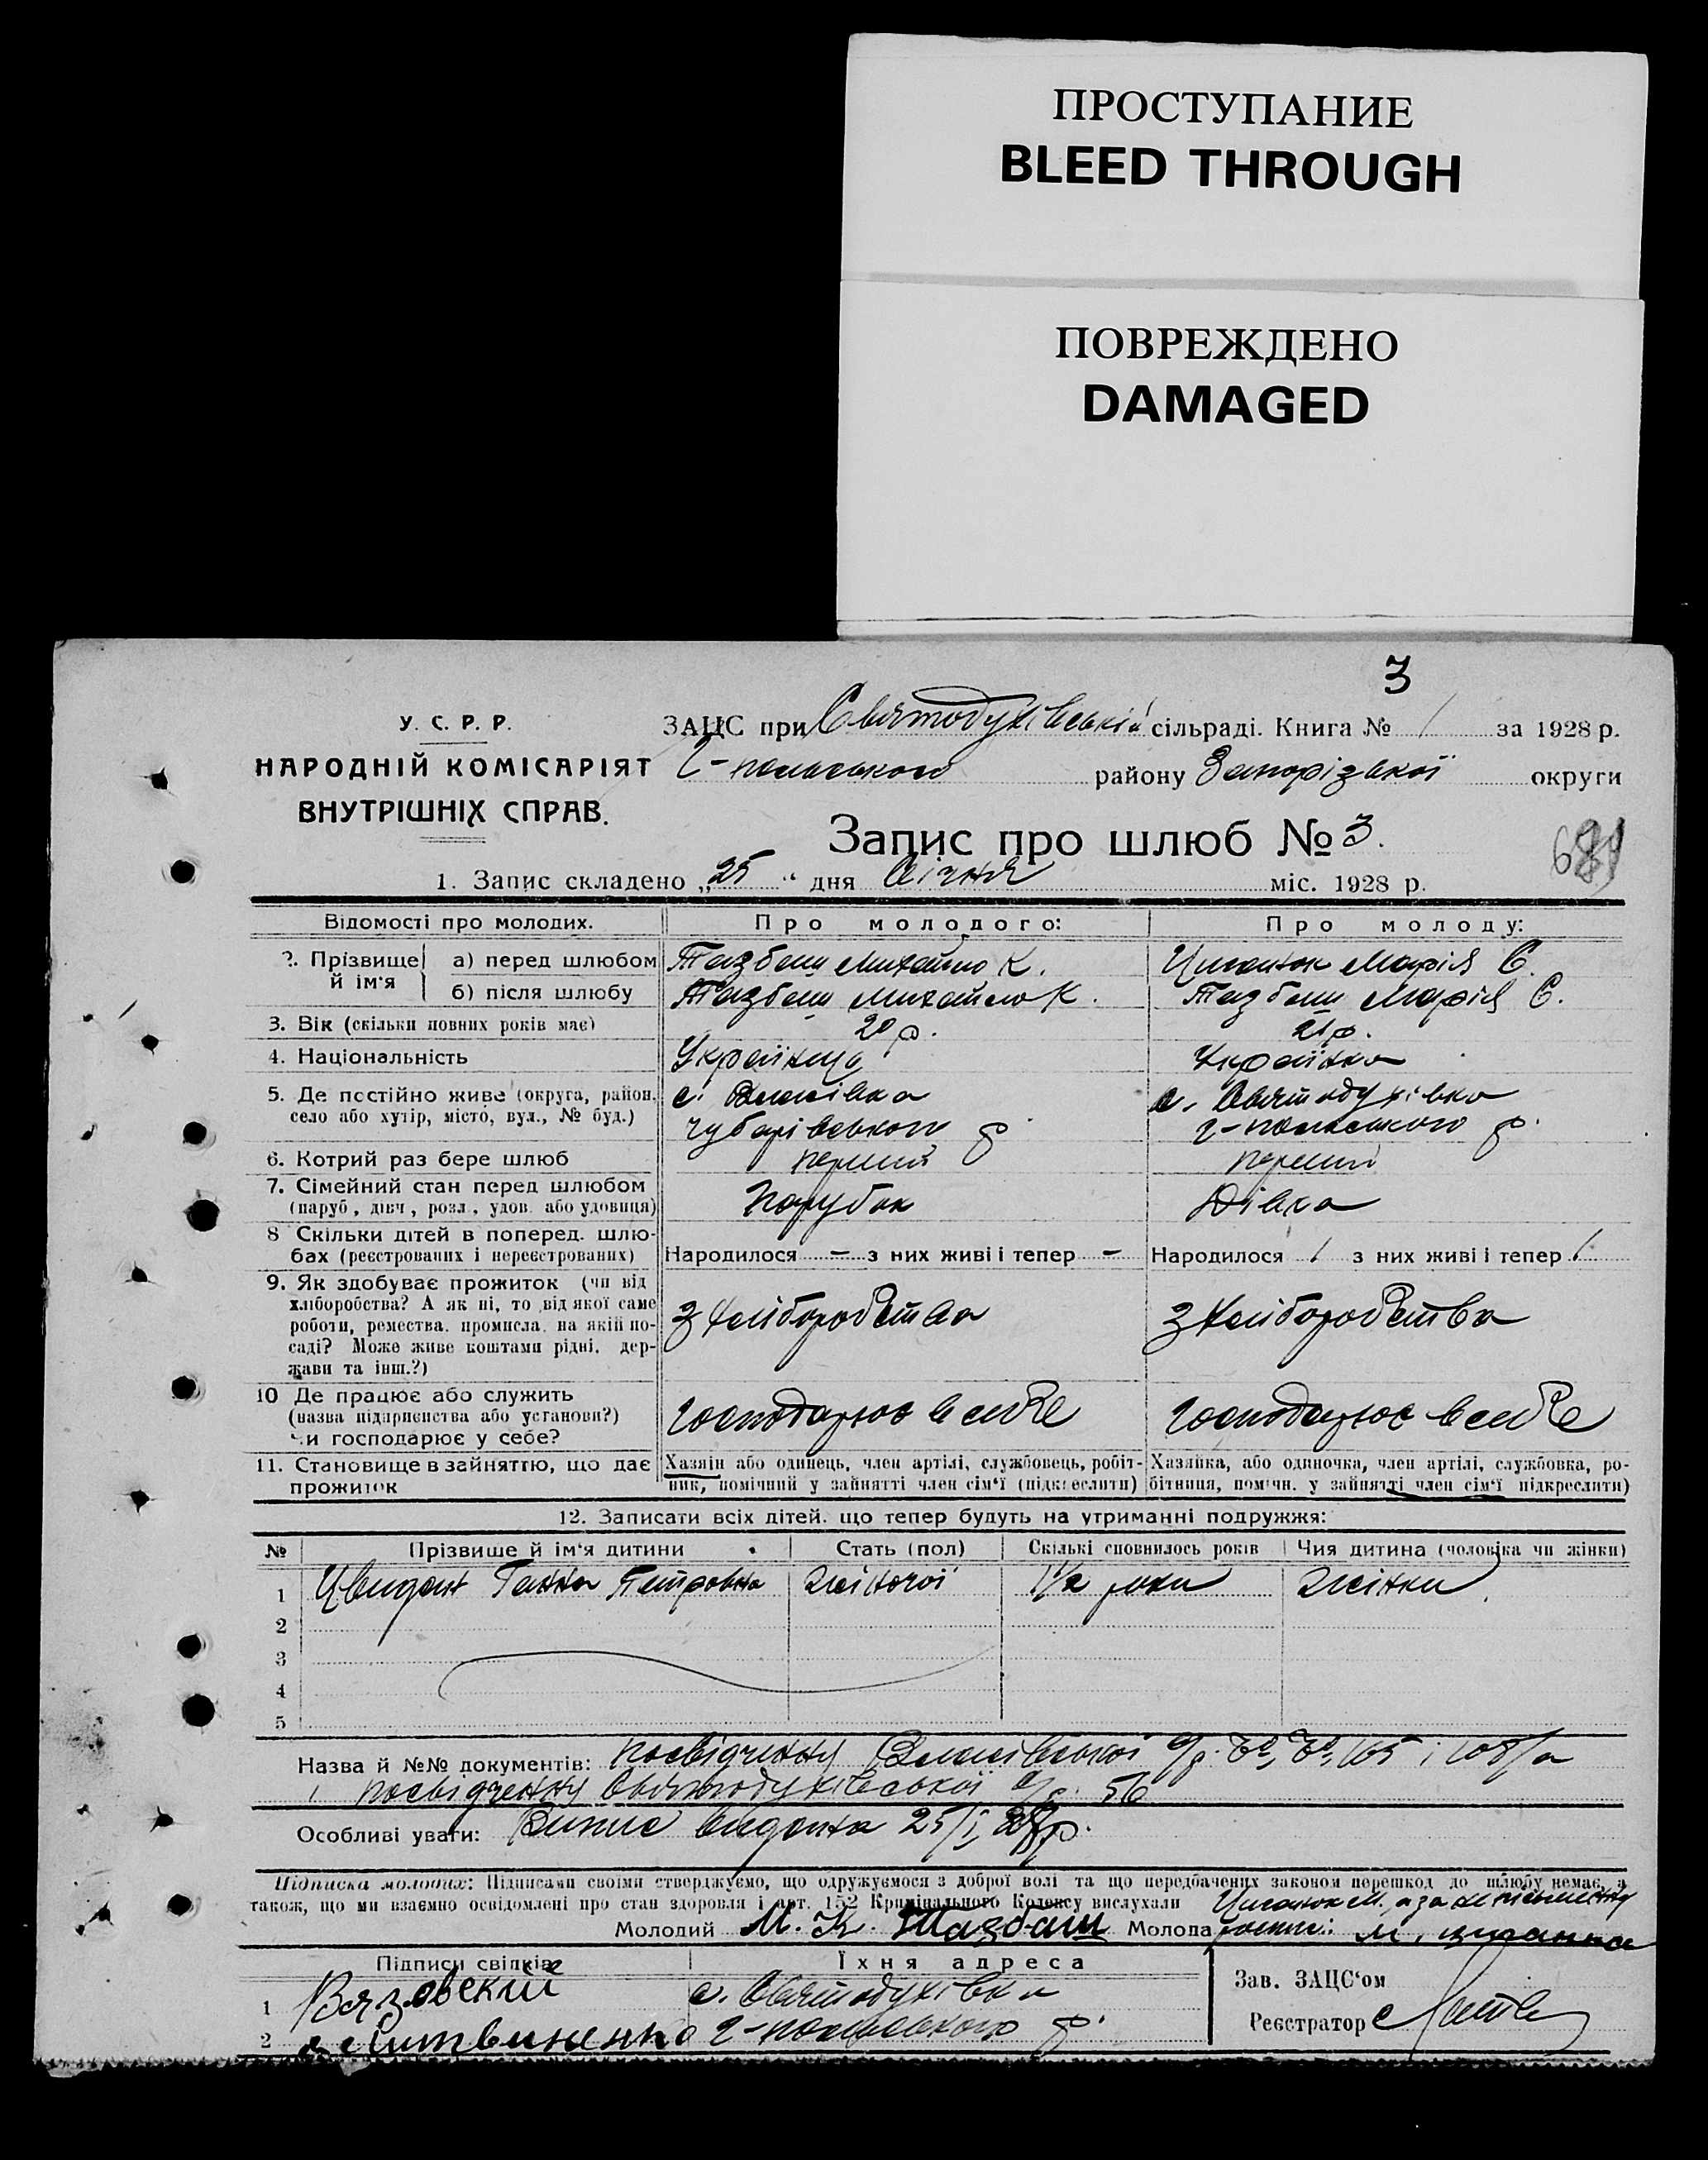 ПРОСТУПАНИЕ
BLEED THROUGH
ПОВРЕЖДЕНО
DAMAGED
3
У. С. Р. Р.
НАРОДНІЙ КОМІСАРІЯТ
ВНУТРІШНІХ СПРАВ.
ЗАЦС при Святодухівській сільраді. Книга № 1 за 1928 р.
г-польського району Запорізької округи
Запис про шлюб № 3.
1. Запис складено „25“ дня Січня міс. 1928 р.
Відомості про молодих. Про молодого: Про молоду:
2. Прізвище й ім'я а) перед шлюбом Тазбаш Михайло К. Циганок Марія С.
б) після шлюбу Тазбаш Михайло К. Тазбаш Марія С.
3. Вік (скільки повних років має) 20 р. 21 р.
4. Національність Українець Українка
5. Де постійно живе (округа, район, с. с. Святодухівка
село або хутір, місто, вул., № буд.) Чубарівського р. г-польського р.
6. Котрий раз бере шлюб перший перший
7. Сімейний стан перед шлюбом Парубок Дівка
(паруб., дівч., розл., удов. або удовиця)
8 Скільки дітей в поперед. шлю-
бах (реєстрованих і нереєстрованих) Народилося — з них живі і тепер — Народилося 1 з них живі і тепер 1
9. Як здобуває прожиток (чи від
хліборобства? А як ні, то від якої саме
роботи, ремества, промисла, на якій по- З хліборобства З хліборобства
саді? Може живе коштами рідні, дер-
жави та інш.?)
10 Де працює або служить
(назва підприємства або установи?) господарює в себе господарює в себе
чи господарює у себе?
11. Становище в зайняттю, що дає Хазяїн або одинець, член артілі, службовець, робіт- Хазяйка, або одиночка, член артілі, службовка, ро-
прожиток ник, помічний у зайнятті член сім'ї (підкреслити) бітниця, поміч. у зайнятті член сім'ї підкреслити)
12. Записати всіх дітей, що тепер будуть на утриманні подружжя:
№ Прізвище й ім'я дитини Стать (пол) Скількі сповнилось років Чия дитина (чоловіка чи жінки)
1 Ганна Петровна жіночої 1½ роки жінки
2
3
4
5
Назва й №№ документів: посвідчення с/р. 165 і
і посвідчення Святодухівської с/р. 56
Особливі уваги: Випис видана 25/I 28 р.
Підписка молодих: Підписами своїми стверджуємо, що одружуємося з доброї волі та що передбачених законом перешкод до шлюбу немає, а
також, що ми взаємно освідомлені про стан здоровля і арт. 152 Кримінального Кодексу вислухали Циганок М. а за неписьменну
Молодий М. К. Тазбаш Молода М. Циганка
Підписи свідків Їхня адреса
1 Вязовский с. Святодухівка Зав. ЗАЦС'ом
2 Литвиненко г-польського р. Реєстратор